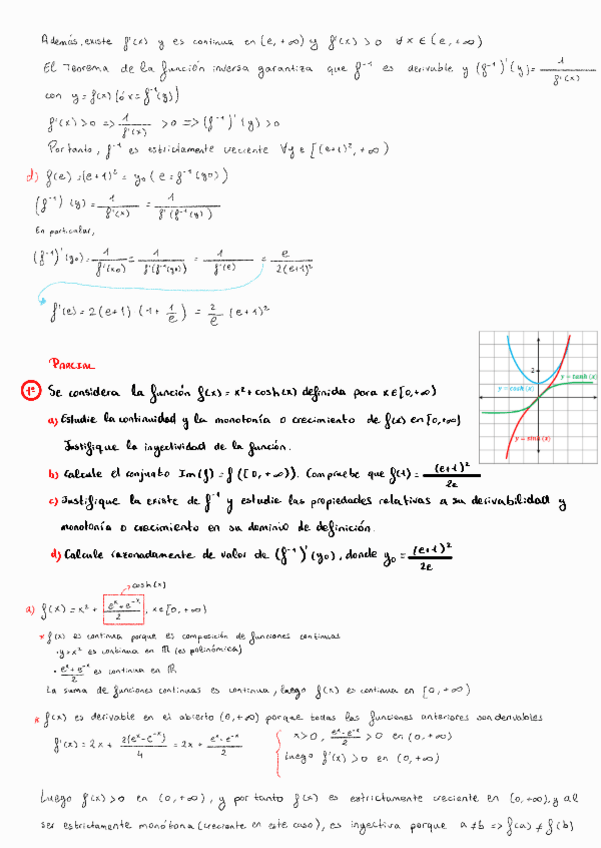 Además, existe f'(x) y es continua en (e, +∞) y f'(x) > 0 ∀x ∈ (e, +∞)
El Teorema de la función inversa garantiza que f⁻¹ es derivable y (f⁻¹)'(y) = 1/f'(x)
con y = f(x) (ó x = f⁻¹(y))
f'(x) > 0 => 1/f'(x) > 0 => (f⁻¹)'(y) > 0
Por tanto, f⁻¹ es estrictamente creciente ∀y ∈ [(e+1)², +∞)
d) f(e) = (e+1)² = y₀ (e = f⁻¹(y₀))
(f⁻¹)'(y) = 1/f'(x) = 1/f'(f⁻¹(y))
En particular,
(f⁻¹)'(y₀) = 1/f'(x₀) = 1/f'(f⁻¹(y₀)) = 1/f'(e) = e/2(e+1)²
f'(e) = 2(e+1) (1 + 1/e) = 2/e (e+1)²
PARCIAL
1º Se considera la función f(x) = x² + cosh(x) definida para x ∈ [0, +∞)
a) Estudie la continuidad y la monotonía o crecimiento de f(x) en [0, +∞)
Justifique la inyectividad de la función.
b) Calcule el conjunto Im(f) = f([0, +∞)). Compruebe que f(1) = (e+1)²/2e
c) Justifique la existe de f⁻¹ y estudie las propiedades relativas a su derivabilidad y
monotonía o crecimiento en su dominio de definición.
d) Calcule razonadamente de valor de (f⁻¹)'(y₀), donde y₀ = (e+1)²/2e
2
y = cosh(x)
y = tanh(x)
y = sinh(x)
cosh(x)
a) f(x) = x² + (eˣ + e⁻ˣ)/2, x ∈ [0, +∞)
* f(x) es continua porque es composición de funciones continuas
· y = x² es continua en ℝ (es polinómica)
· (eˣ + e⁻ˣ)/2 es continua en ℝ
La suma de funciones continuas es continua, luego f(x) es continua en [0, +∞)
* f(x) es derivable en el abierto (0, +∞) porque todas las funciones anteriores son derivables
f'(x) = 2x + 2(eˣ - e⁻ˣ)/4 = 2x + (eˣ - e⁻ˣ)/2
x > 0, (eˣ - e⁻ˣ)/2 > 0 en (0, +∞)
Luego f'(x) > 0 en (0, +∞)
Luego f(x) > 0 en (0, +∞), y por tanto f(x) es estrictamente creciente en (0, +∞), y al
ser estrictamente monótona (creciente en este caso), es inyectiva porque a ≠ b => f(a) ≠ f(b)